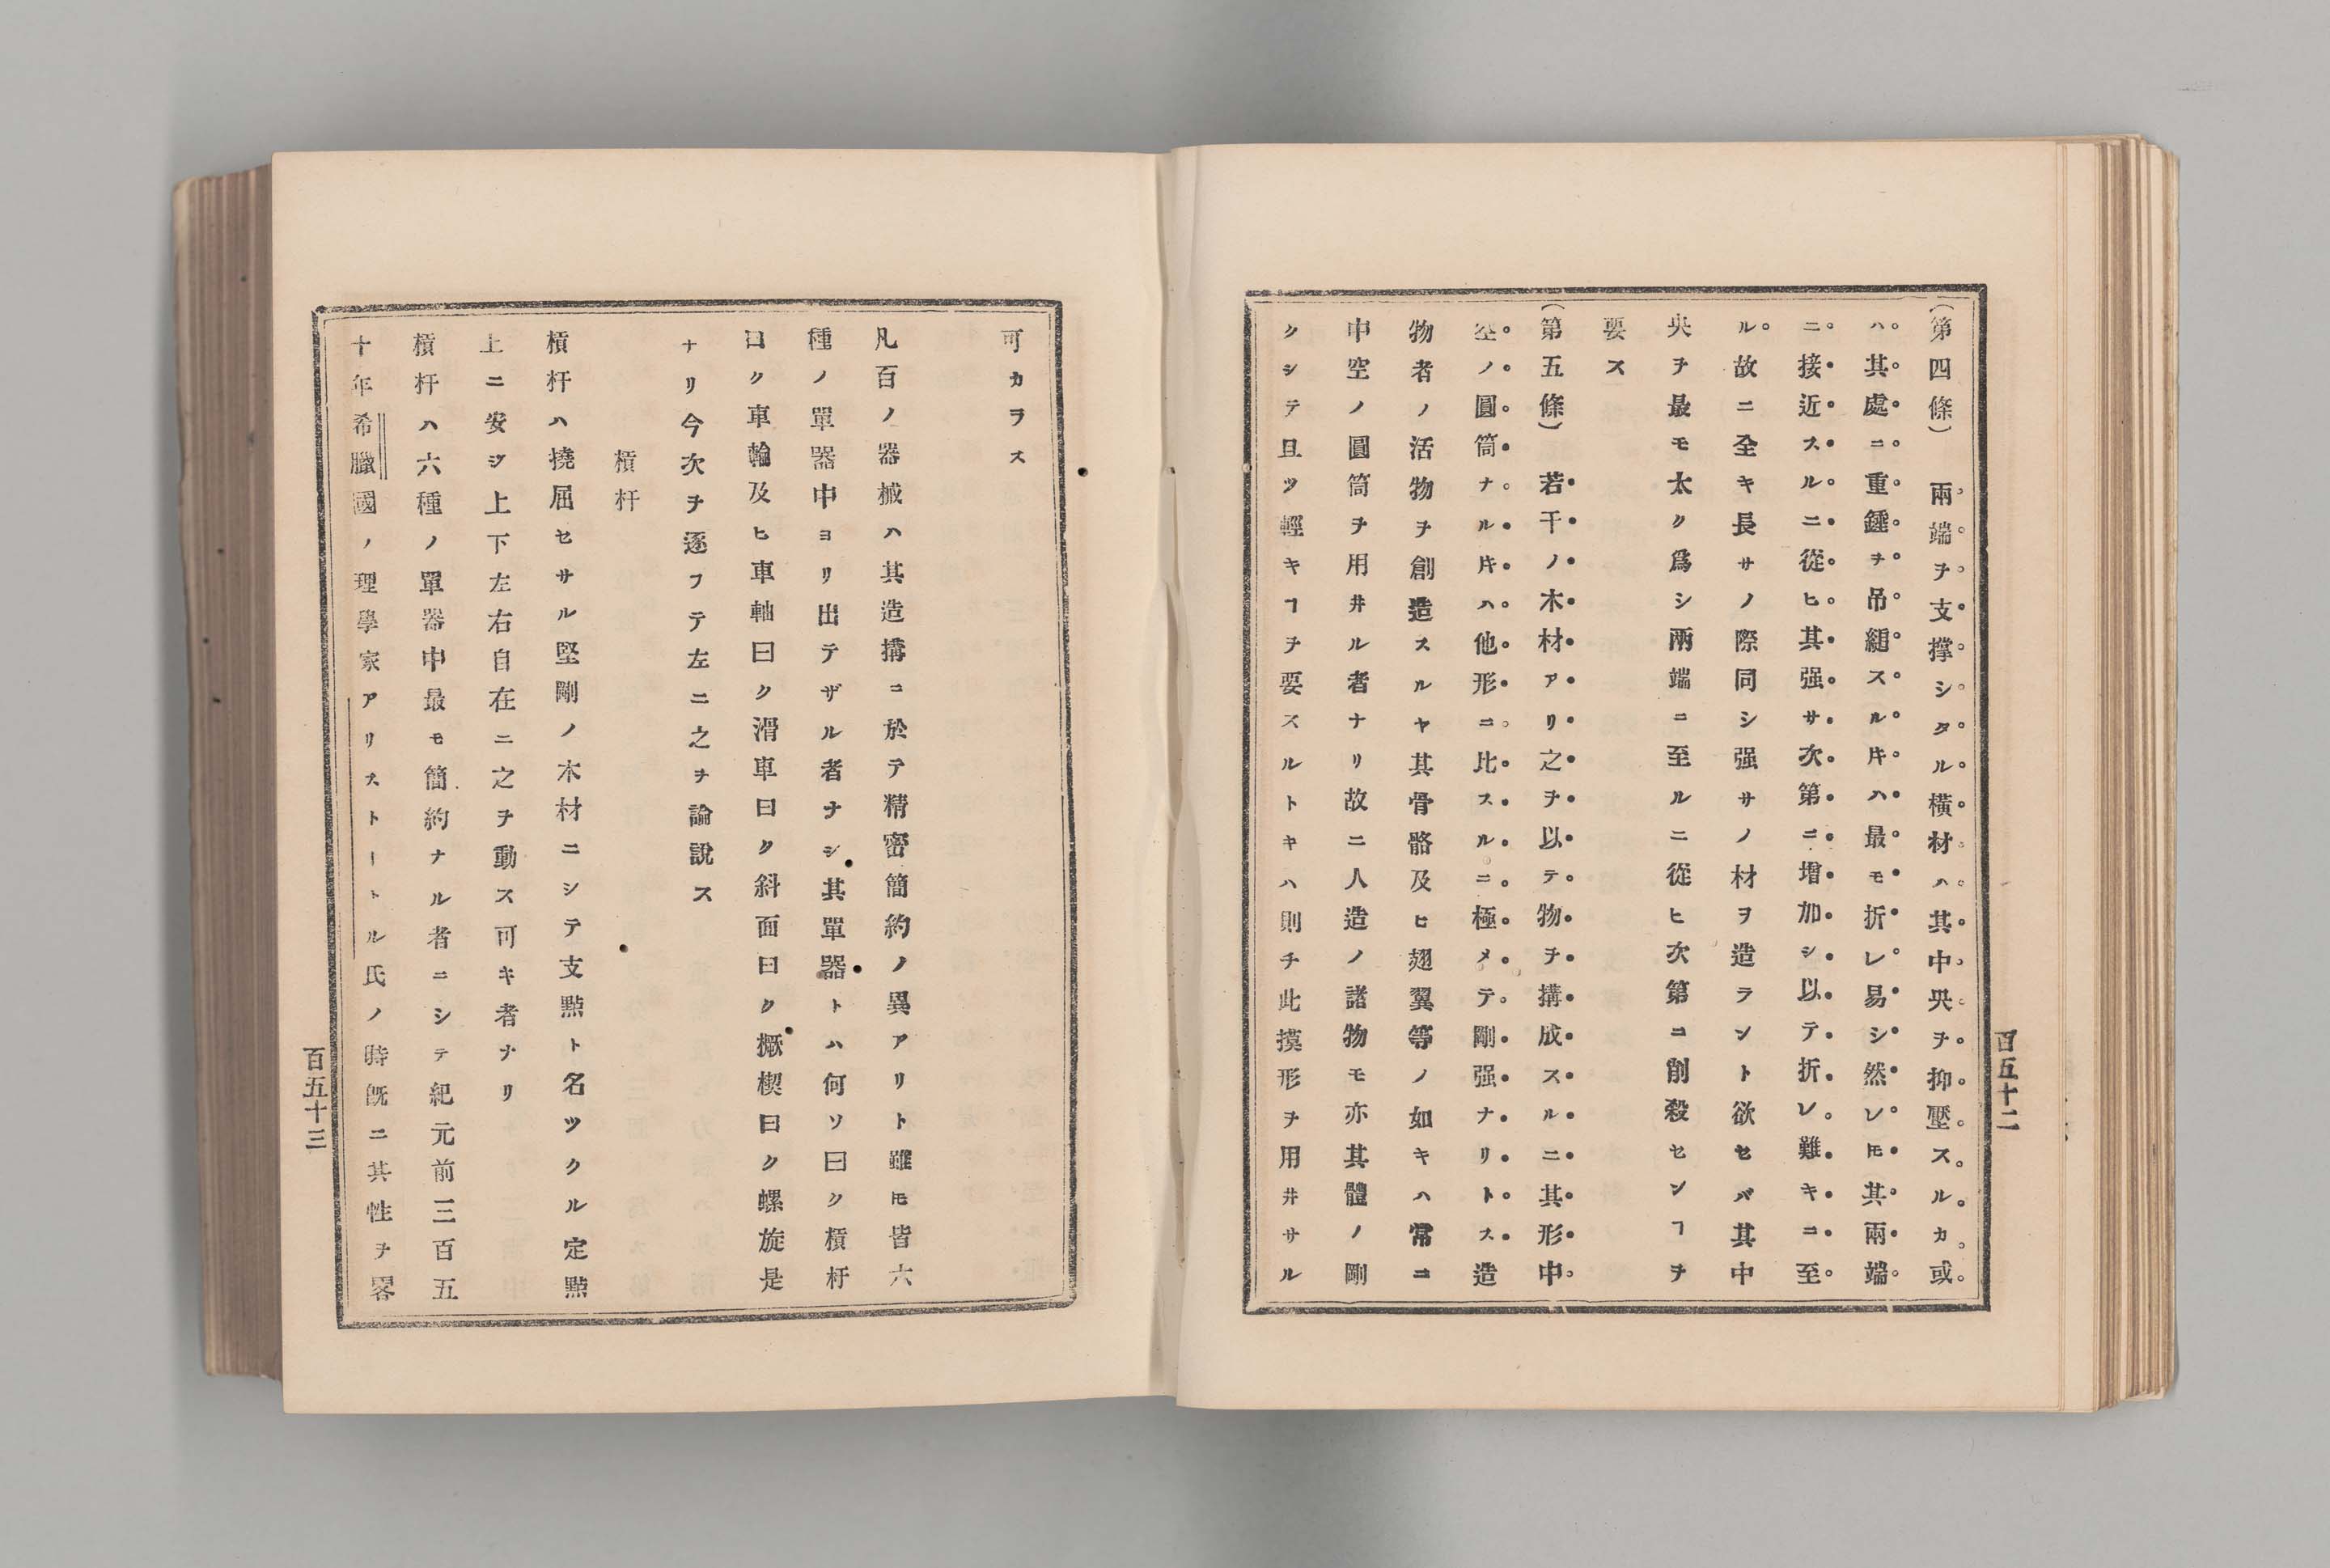 (第四條)　兩端ヲ支撑シタル橫材ハ其中央ヲ抑壓スルカ或
ハ其處ニ重錘ヲ吊縋スル𪜈ハ最モ折レ易シ然レ𪜈其兩端
ニ接近スルニ從ヒ其强サ次第ニ增加シ以テ折レ難キニ至
ル故ニ全キ長サノ際同シ强サノ材ヲ造ラント欲セバ其中
央ヲ最モ太ク爲シ兩端ニ至ルニ從ヒ次第ニ削殺センヿヲ
要ス
(第五條)　若干ノ木材アリ之ヲ以テ物ヲ搆成スルニ其形中
空ノ圓筒ナル片ハ他形ニ比スルニ極メテ剛强ナリトス造
物者ノ活物ヲ創造スルヤ其骨骼及ヒ翅翼等ノ如キハ常ニ
中空ノ圓筒ヲ用井ル者ナリ故ニ人造ノ諸物モ亦其體ノ剛
クシテ且ツ輕キヿヲ要スルトキハ則チ此摸形ヲ用井サル
百五十二
可カラス
凡百ノ器械ハ其造搆ニ於テ精密簡約ノ異アリト雖𪜈皆六
種ノ單器中ヨリ出テザル者ナシ其單器トハ何ソ曰ク槓杆
曰ク車輪及ヒ車軸曰ク滑車曰ク斜面曰ク橛楔曰ク螺旋是
ナリ今次ヲ逐フテ左ニ之ヲ論說ス
槓杆
槓杆ハ撓屈セサル堅剛ノ木材ニシテ支㸃ト名ツクル定㸃
上ニ安シ上下左右自在ニ之ヲ動ス可キ者ナリ
槓杆ハ六種ノ單器中最モ簡約ナル者ニシテ紀元前三百五
十年希臘國ノ理學家アリストートル氏ノ時旣ニ其性ヲ畧
百五十三